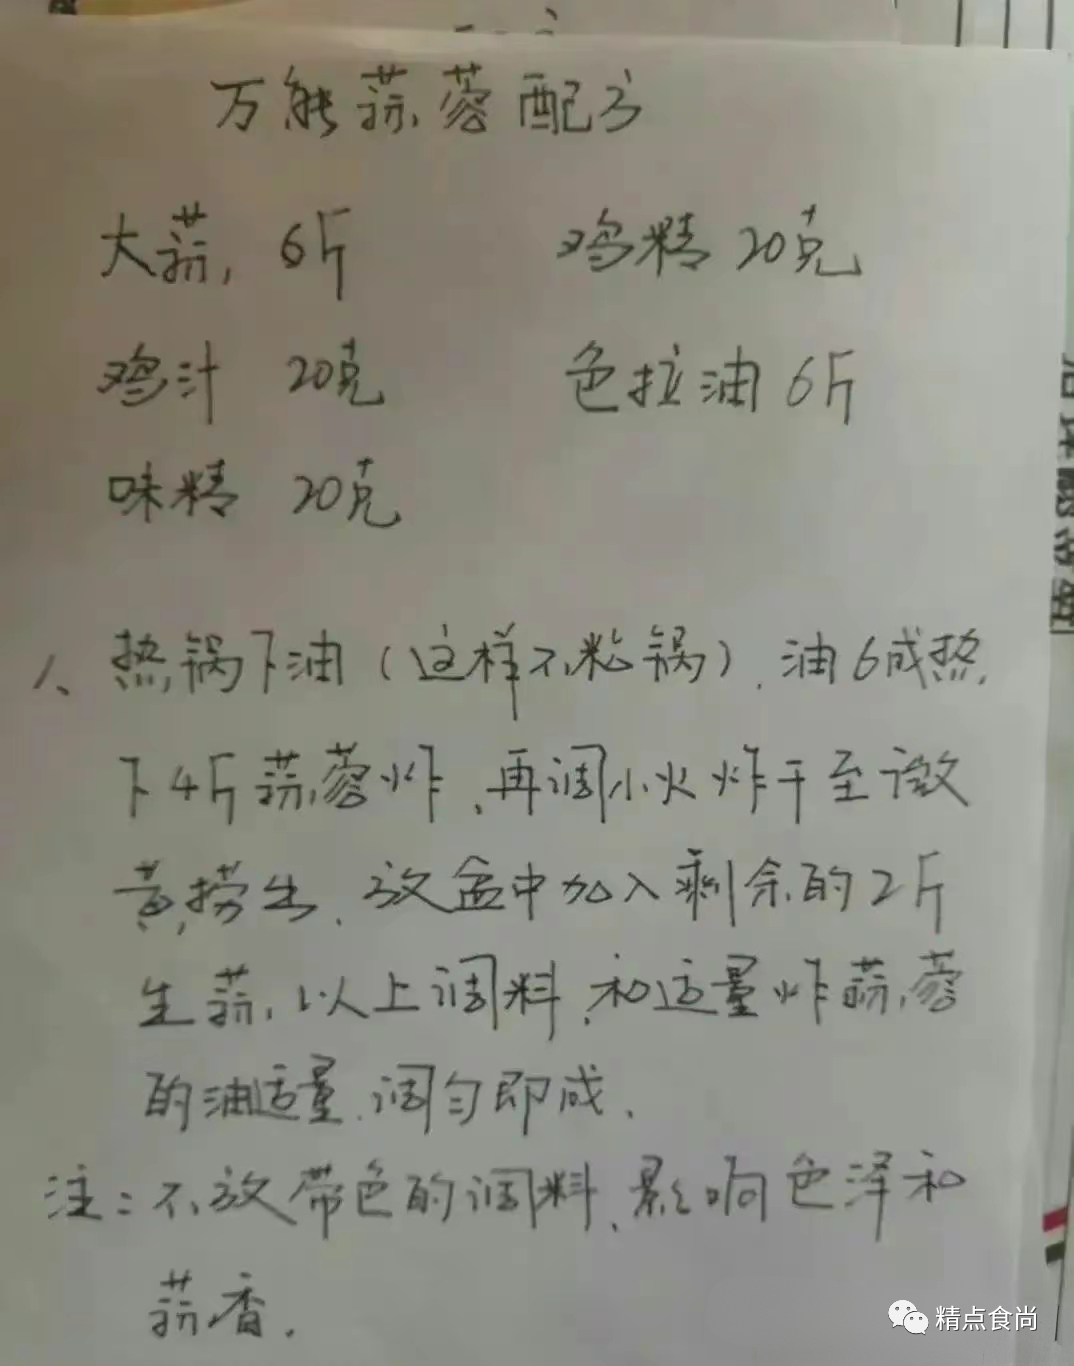 万能蒜蓉配方
大蒜, 6斤 鸡精 20克
鸡汁 20克 色拉油 6斤
味精 20克
1、热锅下油(这样不粘锅). 油6成热,
下4斤蒜蓉炸,再调小火炸干至微
黄,捞出,放盆中加入剩余的2斤
生蒜,以上调料,和适量炸蒜蓉
的油适量,调匀即成.
注:不放带色的调料,影响色泽和
蒜香.
精点食尚